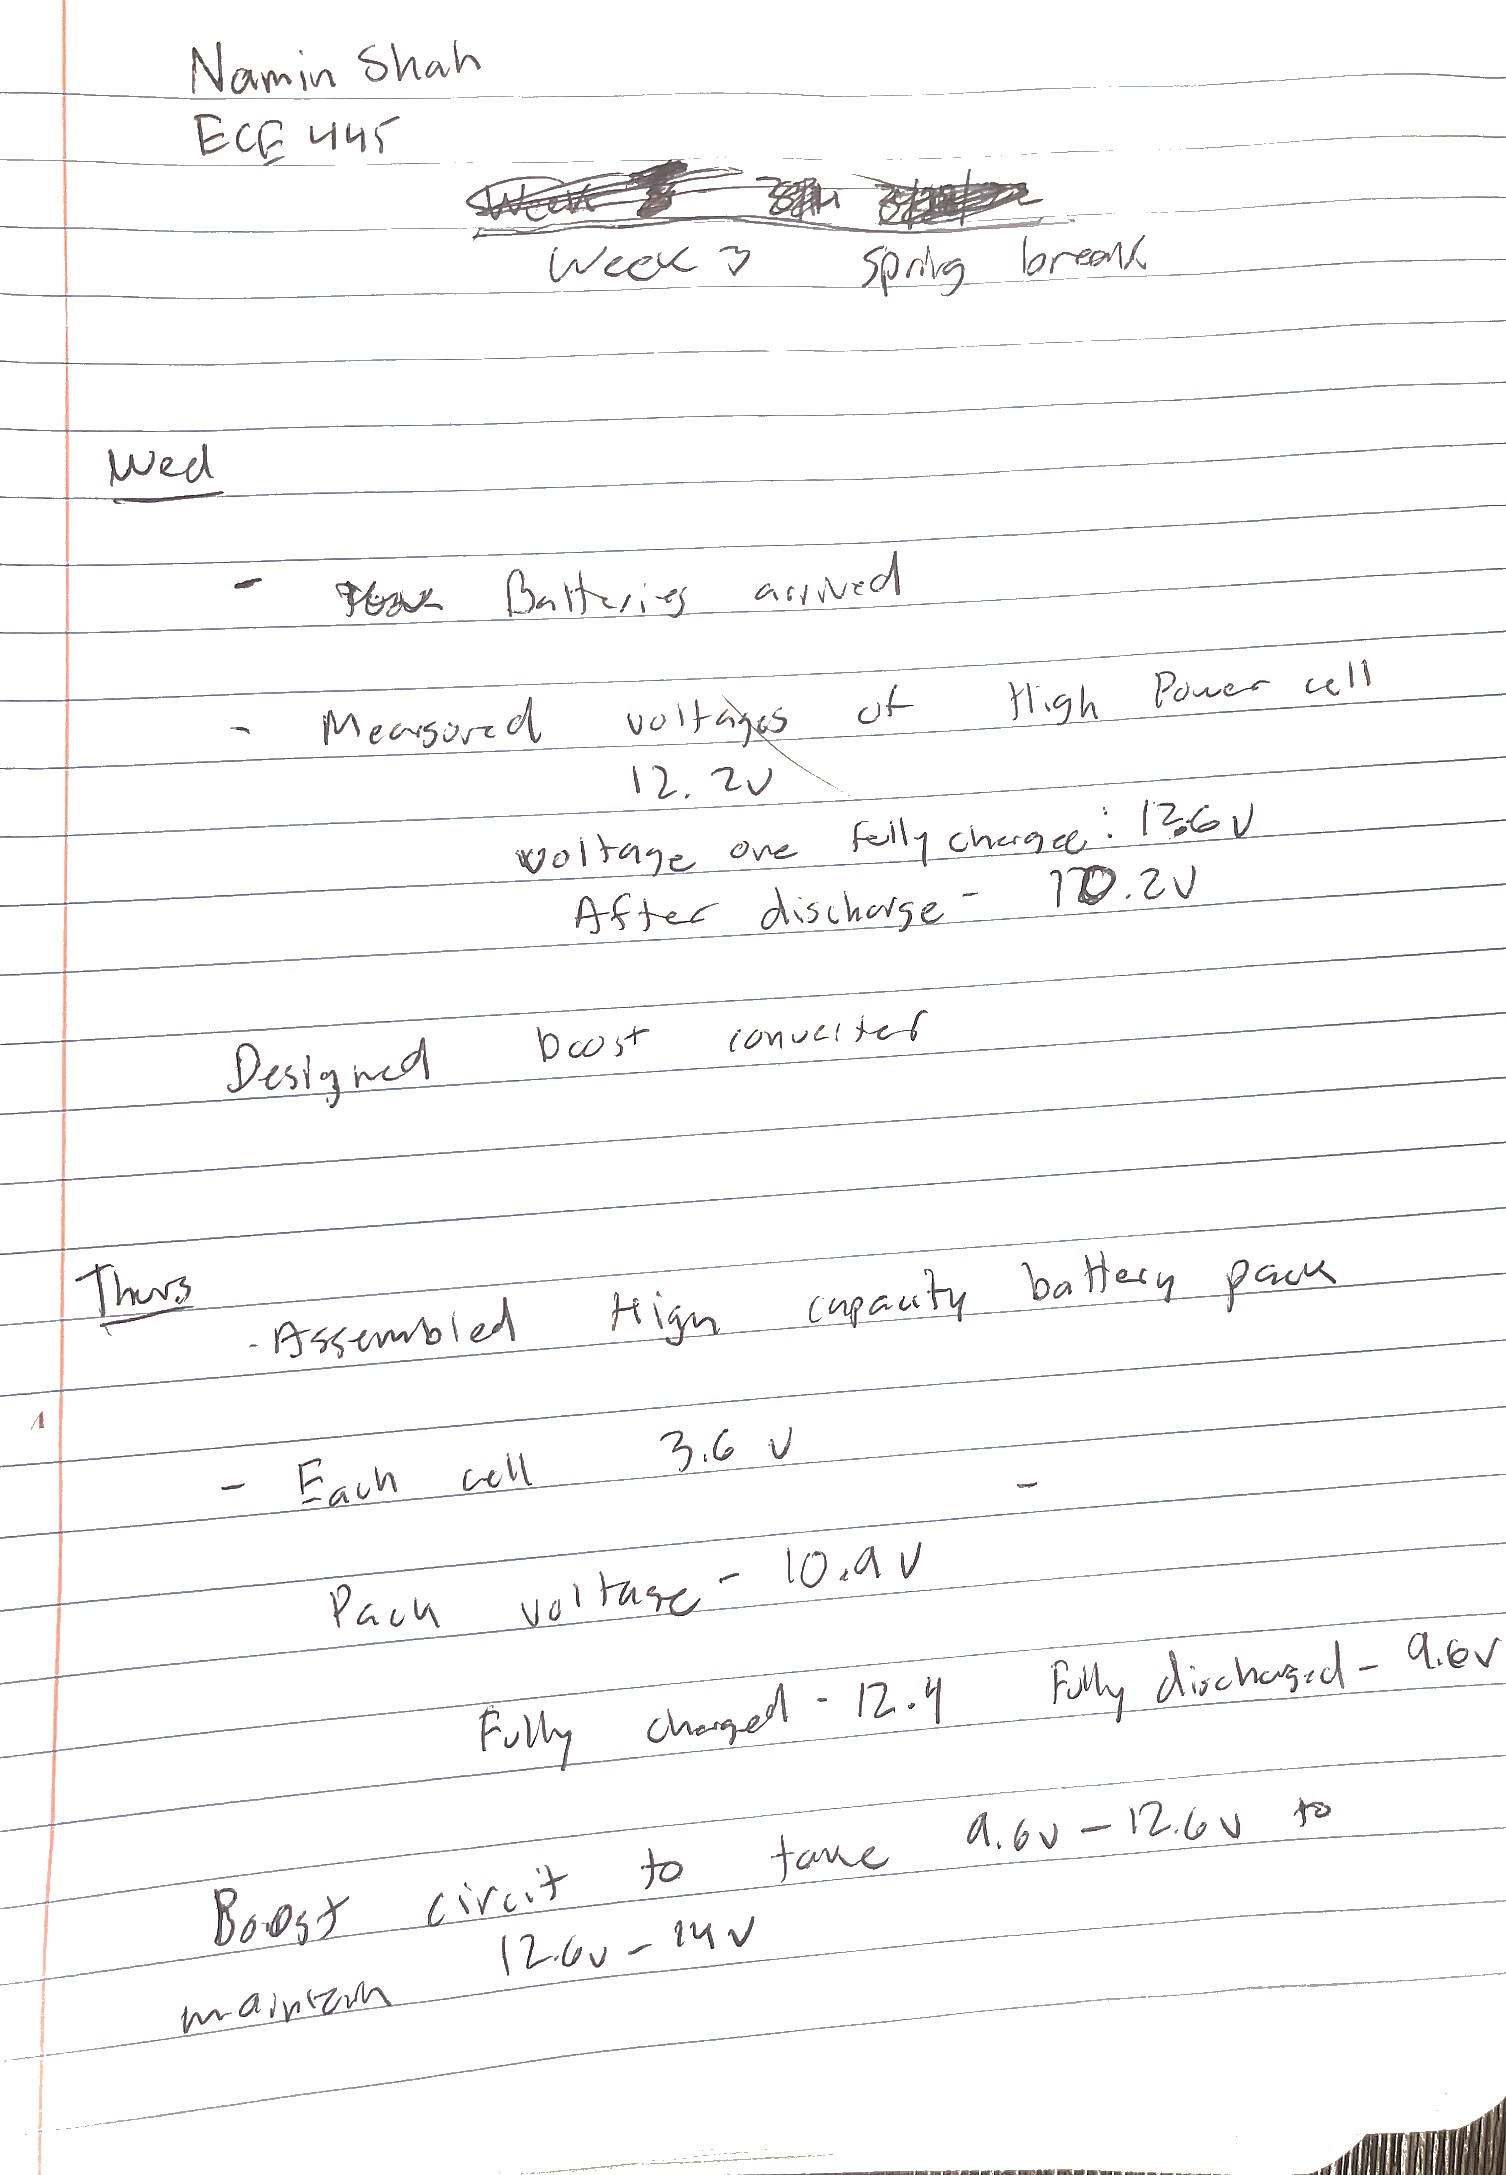 Namin Shah
ECE 445
Week 3 Spring break
Wed
- Batteries arrived
- Measured voltages of High Power cell
12.2v
voltage one fully charged: 12.6v
After discharge - 10.2v
Designed boost converter
Thurs
- Assembled High capacity battery pack
- Each cell 3.6 v -
Pack voltage - 10.9v
Fully charged - 12.4 Fully discharged - 9.6v
Boost circit to take 9.6v - 12.6v to
maintain 12.6v - 14v